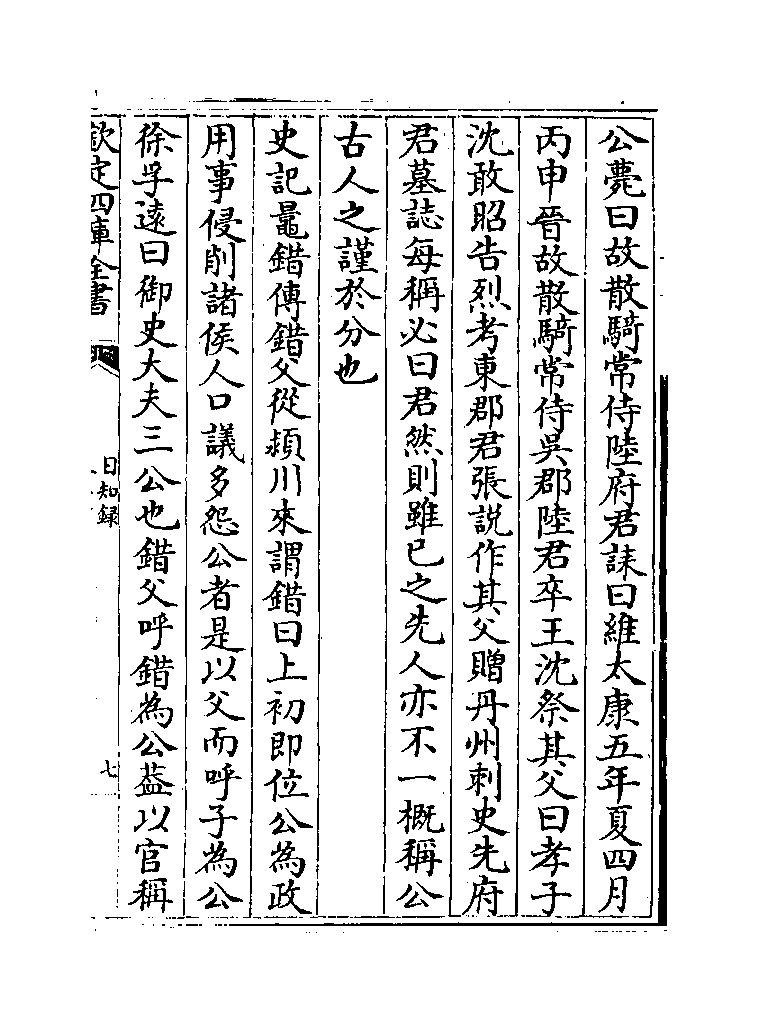 公薨曰故散騎常侍陸府君誄曰維太康五年夏四月
丙申晉故散騎常侍吳郡陸君卒王沈祭其父曰孝子
沈敢昭告烈考東郡君張説作其父贈丹州刺史先府
君墓誌每稱必曰君然則雖已之先人亦不一概稱公
古人之謹於分也
史記鼂錯傳錯父從潁川來謂錯曰上初即位公為政
用事侵削諸侯人口議多怨公者是以父而呼子為公
徐孚遠曰御史大夫三公也錯父呼錯為公葢以官稱
欽定四庫全書
日知録
七